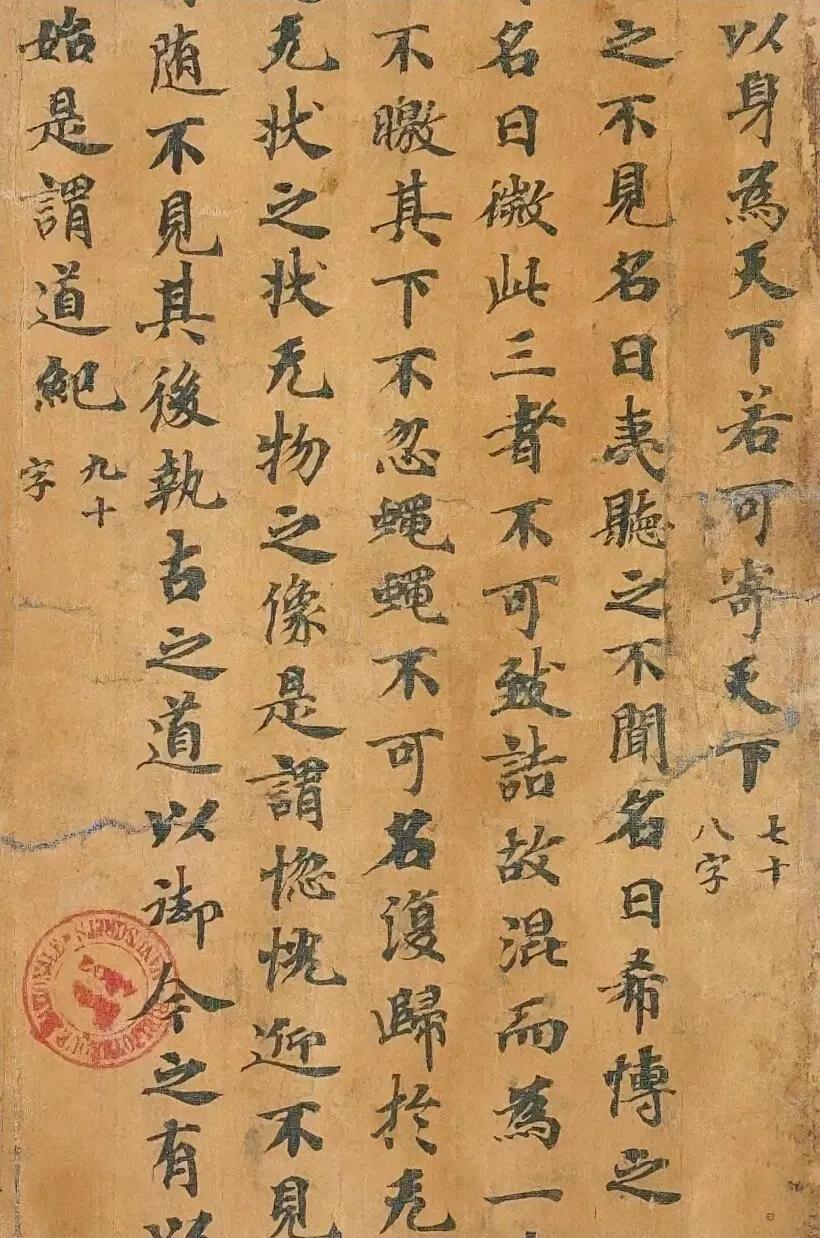 以身為天下若可寄天下七十八字
之不見名曰夷聽之不聞名曰希愽之
名曰微此三者不可致詰故混而為一
不曒其下不忽蠅蠅不可名復歸於无
无状之状无物之像是謂惚恍迎不見
随不見其後執古之道以御今之有以
始是謂道紀九十字